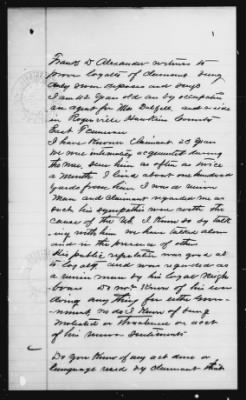 Frank D Alexander witness to
prove loyalty of claimant being
duly sworn deposes and says
I am 42 years old am by occupation
an agent for Mr and reside
in Rogersville Hawkins County
East Tennessee
I have known Claimant 20 years
we were intimately acquainted during
the war, saw him as often as twice
a month I lived about one hundred
yards from him I was a union
man and claimant regarded me as
such his sympathies were with the
cause of the U.S. I know so by talk
ing with him we have talked alone
and in the presence of others
his public reputation was good as
to loyalty and was regarded as
a union man by his loyal neigh
bours Do not know of his ever
doing any thing for either Gove
nment, nor do I know of being
molested or threatened on acct
of his union sentiments
Do you know of any act done or
language used by claimant that